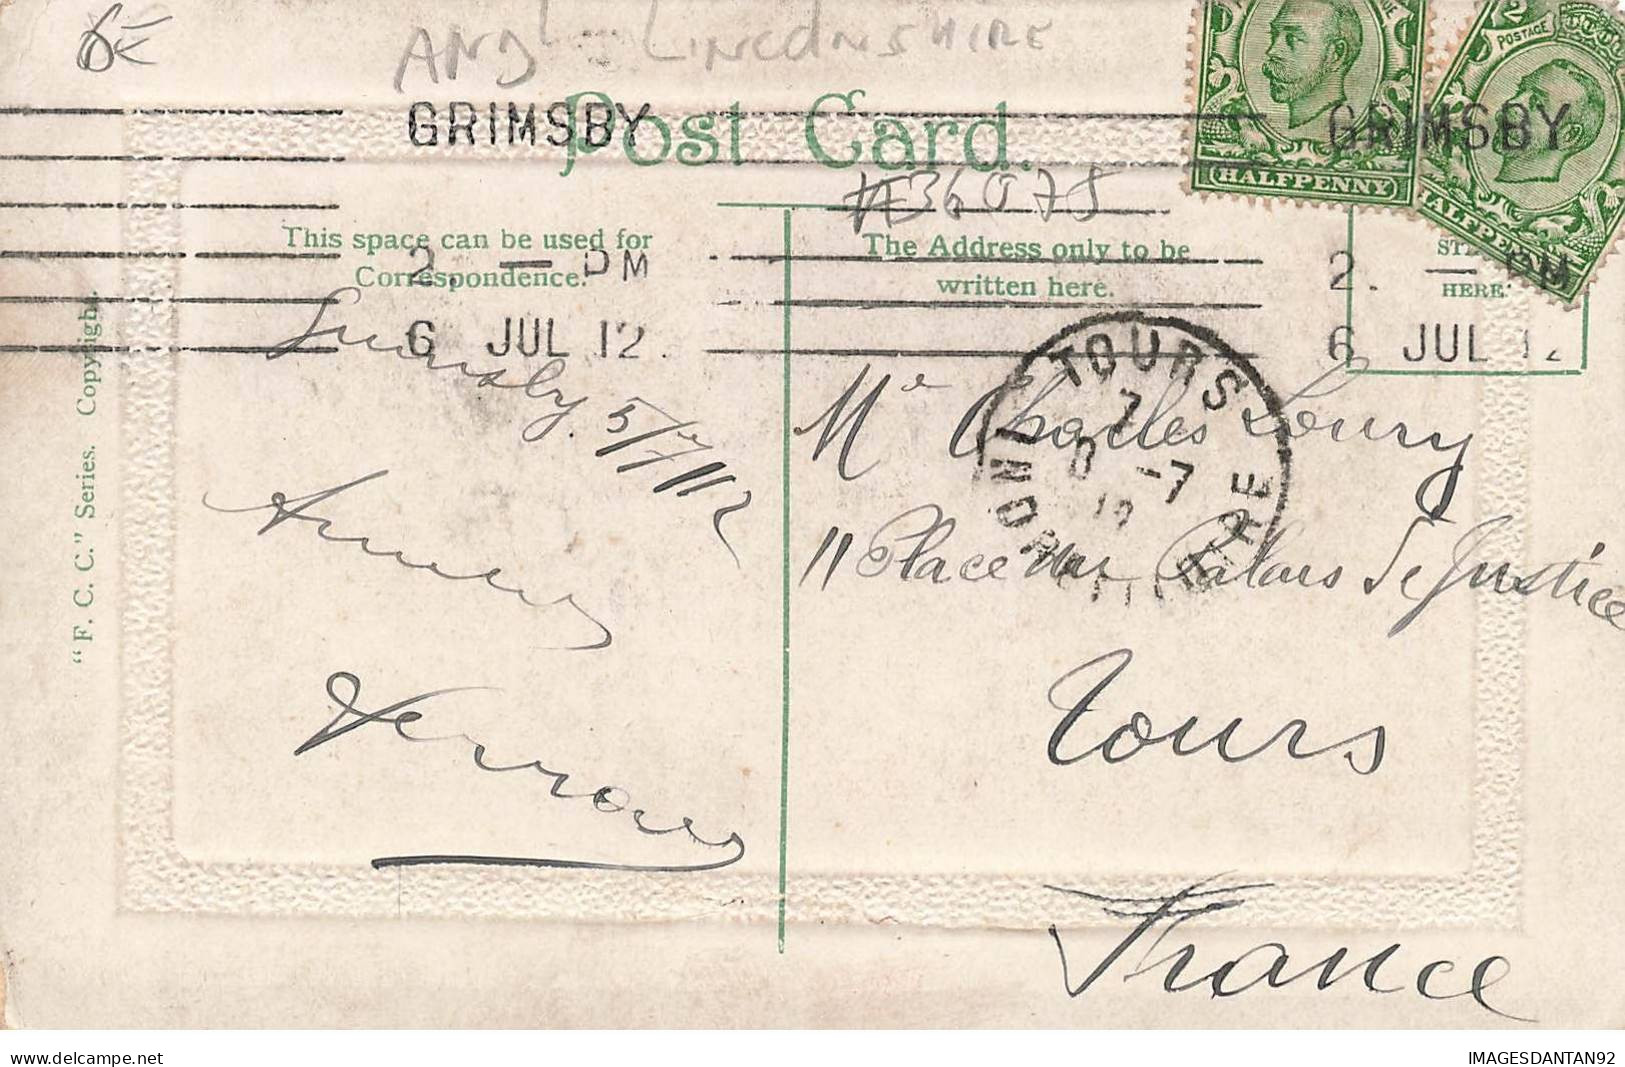 6€
ANGL - LINCOLNSHIRE
GRIMSBY
Post Card.
HALFPENNY
POSTAGE
HALFPENNY
GRIMSBY
#36075
This space can be used for
Correspondence.
The Address only to be
written here.
HERE
2. — PM
6 JUL 12.
2. — PM
6 JUL 12
"F. C. C." Series. Copyright.
Grimsby. 5/7/12
TOURS
7
-7
12
INDRE
Mr Charles Loury
11 Place du Palais de Justice
Tours
France
delcampe.net
IMAGESDANTAN92